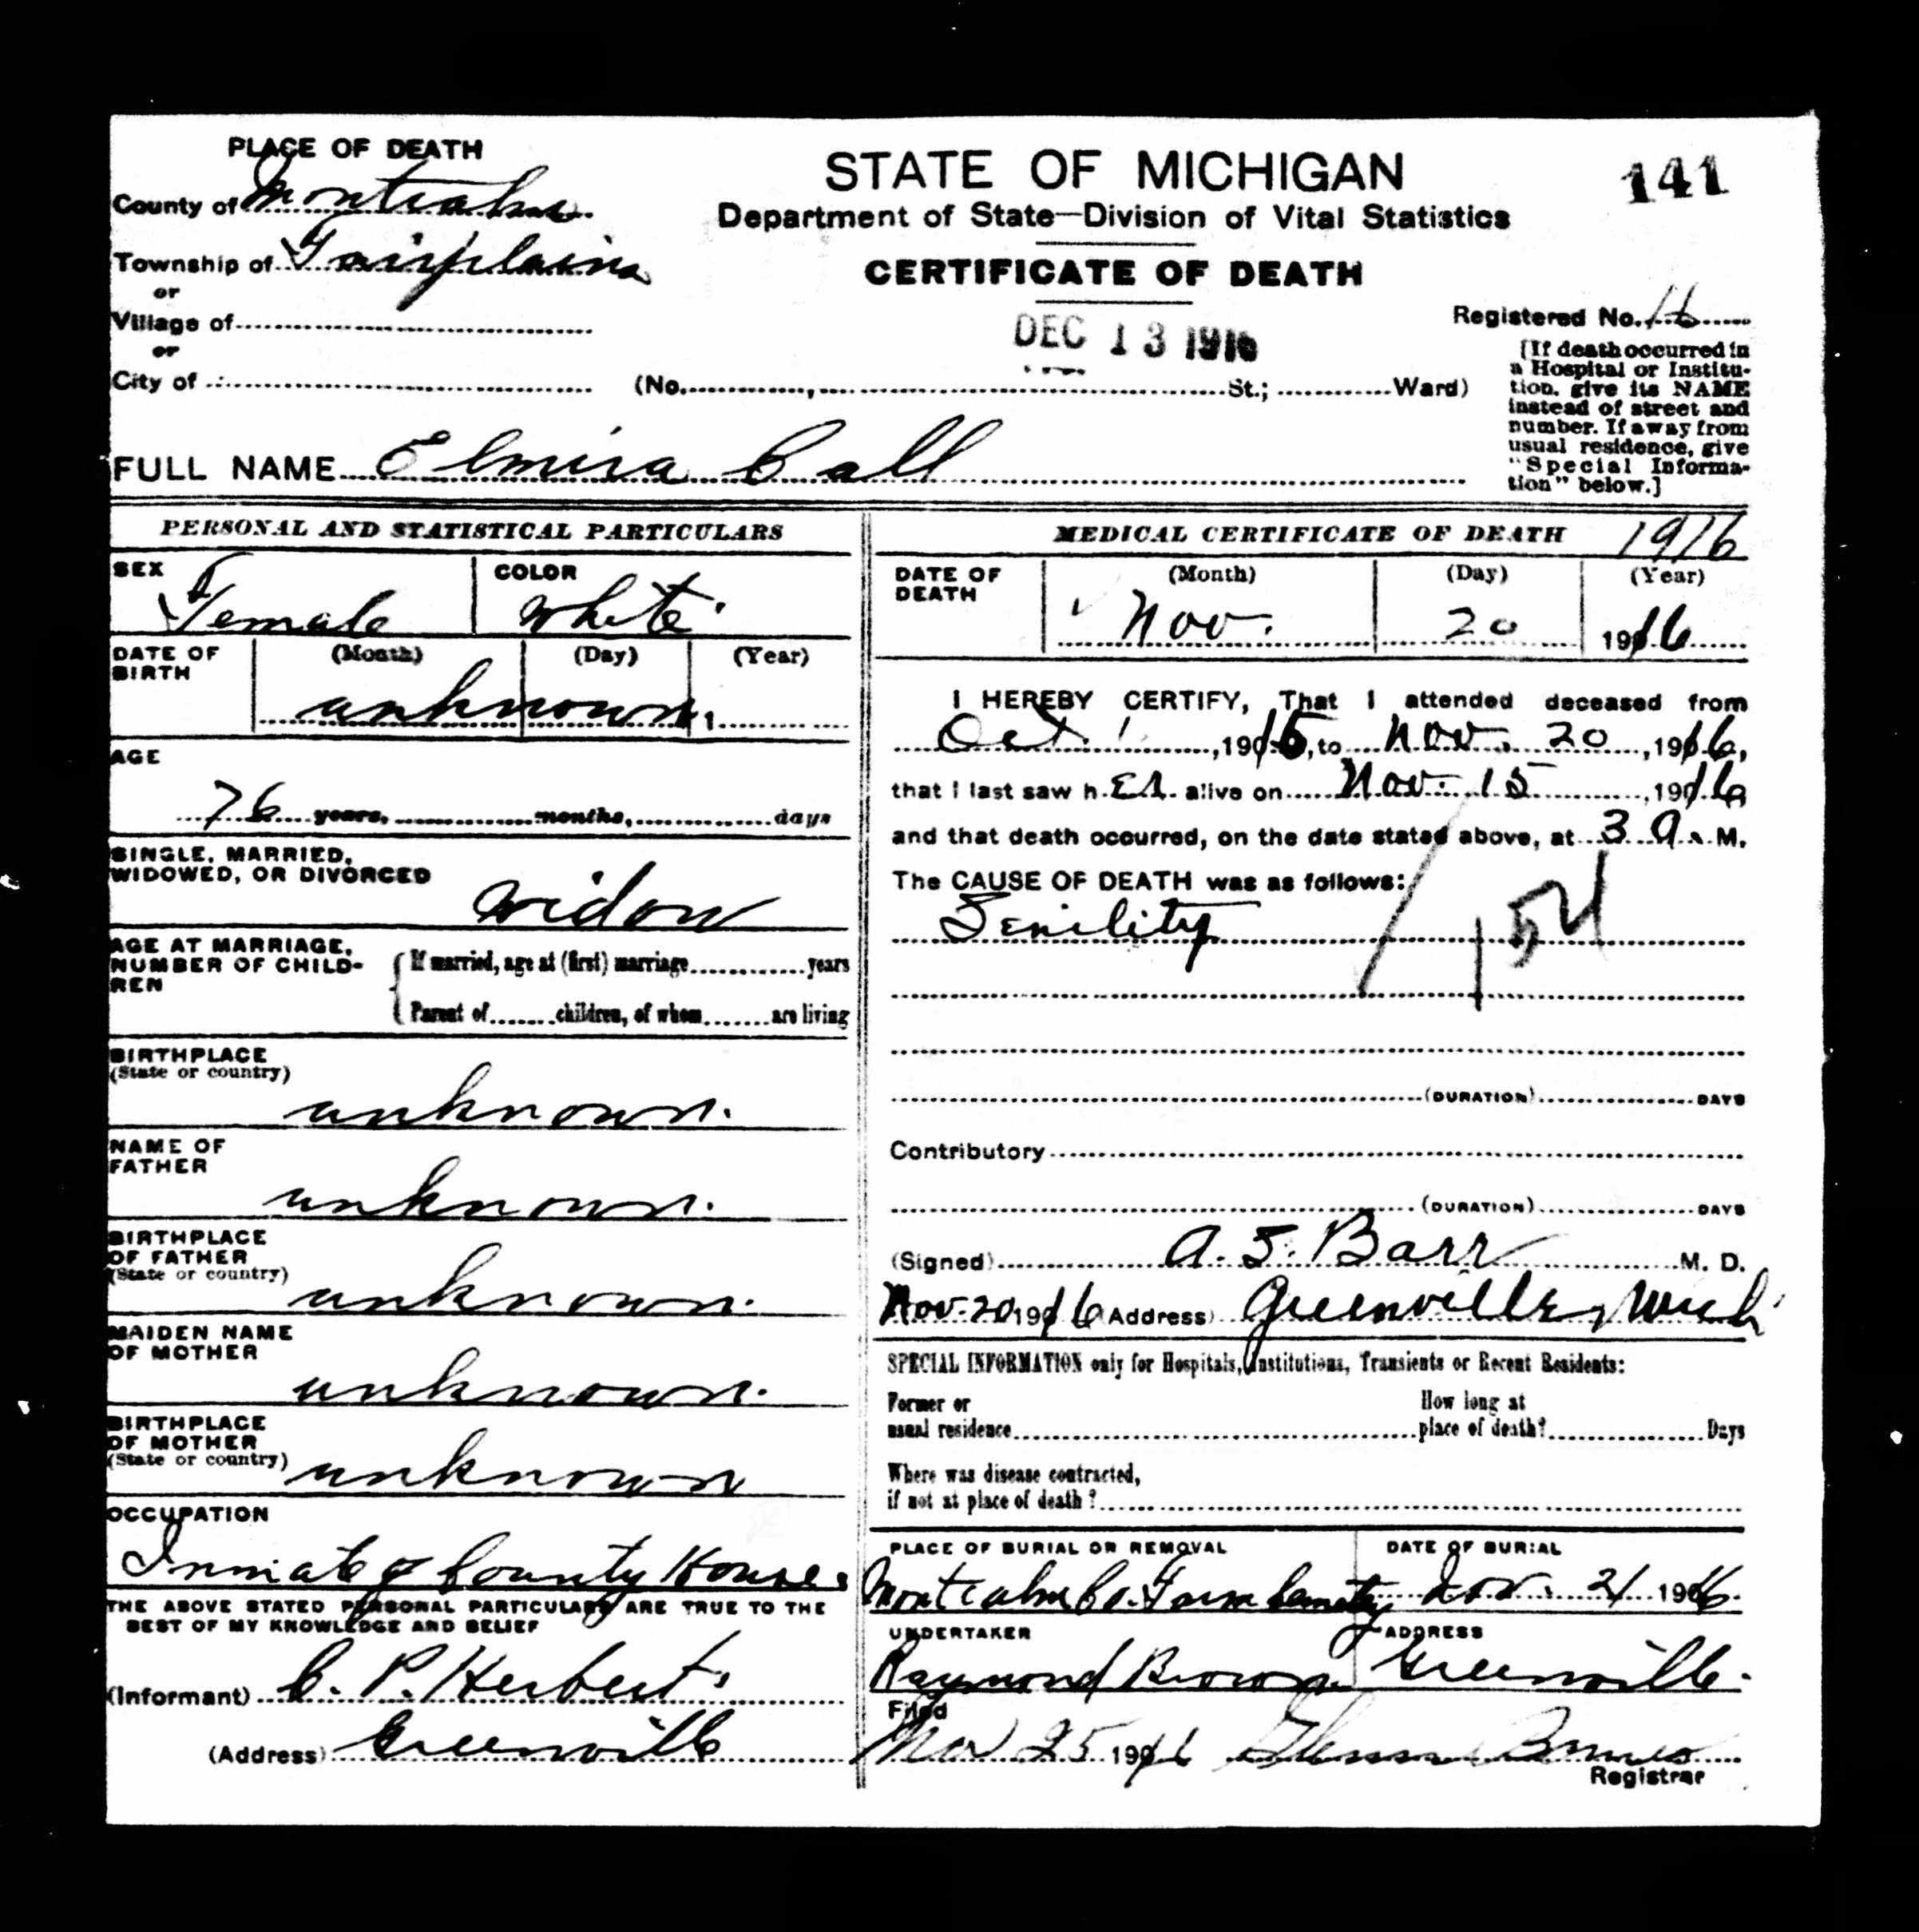 PLACE OF DEATH
County of Montcalm
Township of Fairplains
or
Village of
or
City of
STATE OF MICHIGAN
Department of State—Division of Vital Statistics
CERTIFICATE OF DEATH
DEC 13 1916
141
Registered No. 16
(No. , St.; Ward)
[If death occurred in
a Hospital or Institu-
tion, give its NAME
instead of street and
number. If away from
usual residence, give
"Special Informa-
tion" below.]
FULL NAME Elmira Call
PERSONAL AND STATISTICAL PARTICULARS
SEX Female
COLOR white
DATE OF BIRTH
(Month) (Day) (Year)
unknown 1
AGE
76 years, months, days
SINGLE, MARRIED,
WIDOWED, OR DIVORCED
widow
AGE AT MARRIAGE,
NUMBER OF CHILD-
REN
If married, age at (first) marriage years
Parent of children, of whom are living
BIRTHPLACE
(State or country)
unknown.
NAME OF
FATHER
unknown.
BIRTHPLACE
OF FATHER
(State or country)
unknown.
MAIDEN NAME
OF MOTHER
unknown.
BIRTHPLACE
OF MOTHER
(State or country)
unknown
OCCUPATION
Inmate of County House.
THE ABOVE STATED PERSONAL PARTICULARS ARE TRUE TO THE
BEST OF MY KNOWLEDGE AND BELIEF
(Informant) C. P. Herbert
(Address) Greenville
MEDICAL CERTIFICATE OF DEATH 1916
DATE OF
DEATH
(Month) (Day) (Year)
Nov. 20 1916
I HEREBY CERTIFY, That I attended deceased from
Oct. 1, 1915, to Nov. 20, 1916,
that I last saw her alive on Nov. 15, 1916
and that death occurred, on the date stated above, at 3 a. M.
The CAUSE OF DEATH was as follows:
Senility
154
(DURATION) DAYS
Contributory
(DURATION) DAYS
(Signed) A. S. Barr M. D.
Nov. 20 1916 (Address) Greenville, Mich
SPECIAL INFORMATION only for Hospitals, Institutions, Transients or Recent Residents:
Former or
usual residence
How long at
place of death? Days
Where was disease contracted,
if not at place of death?
PLACE OF BURIAL OR REMOVAL
Montcalm Co. Farm Cemetery
DATE OF BURIAL
Nov. 21 1916
UNDERTAKER
Raymond Brown
ADDRESS
Greenville.
Filed
Nov 25 1916
Registrar